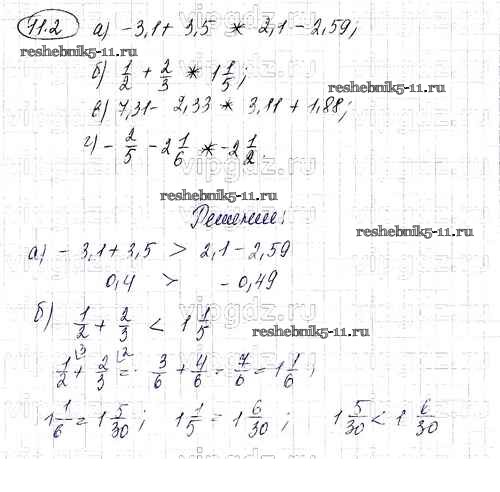 11.2 а) -3,1 + 3,5 * 2,1 - 2,59;
reshebnik5-11.ru
б) 1/2 + 2/3 * 1 1/5;
reshebnik5-11.ru
в) 7,31 - 2,33 * 3,11 + 1,88;
г) - 2/5 - 2 1/6 * -2 1/2
vipgdz.ru
reshebnik5-11.ru
Решение:
reshebnik5-11.ru
а) - 3,1 + 3,5 > 2,1 - 2,59
0,4 > - 0,49
vipgdz.ru
б) 1/2 + 2/3 < 1 1/5
reshebnik5-11.ru
1/2 \3 + 2/3 \2 = 3/6 + 4/6 = 7/6 = 1 1/6;
1 1/6 = 1 5/30; 1 1/5 = 1 6/30; 1 5/30 < 1 6/30